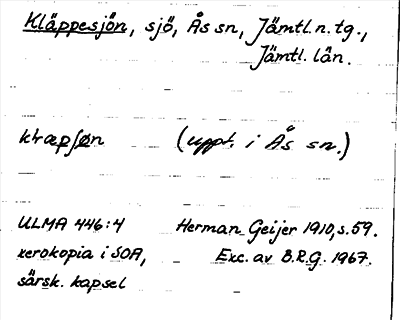 Kläppesjön, sjö, Ås sn, Jämtl. n. tg.,
Jämtl. län.
klæpʃøn (uppt. i Ås sn.)
ULMA 446:4 Herman Geijer 1910, s. 59.
xerokopia i SOA, Exc. av B.R.G. 1967.
särsk. kapsel